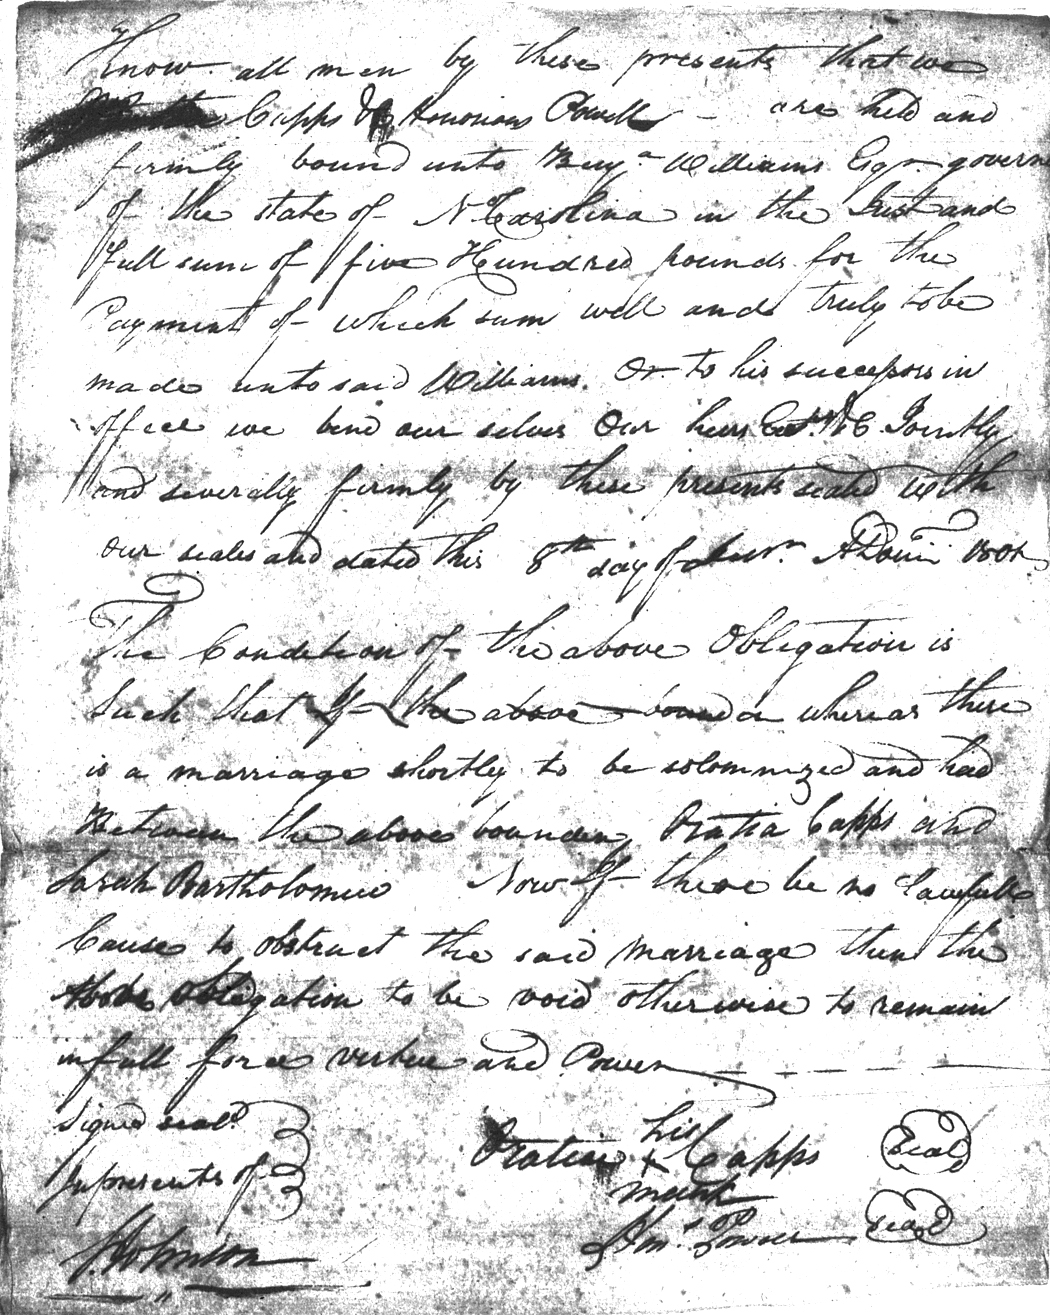 Know all men by these presents that we
Capps & Honorious Powell - are held and
firmly bound unto Benjn Williams Esqr govern
of the state of N Carolina in the Just and
full sum of five Hundred pounds for the
Payment of which sum well and truly to be
made unto said Williams. Or to his successors in
office we bind our selves Our heirs Exrs &C Jointly
and severally firmly by these presents seald with
our seales and dated this 8th day of A Domini
The Condition of the above Obligation is
Such that If the above bounden whereas there
is a marriage shortly to be solomnized and had
Between the above bounden Oratia Capps and
Sarah Bartholomew Now If there be no lawfull
Cause to obstruct the said marriage then the
Above obligation to be void otherwise to remain
in full force virtue and Power
Signed seald
In presents of
his
Oratia x Capps Seal
mark
Honr Powell Seal
Johnson